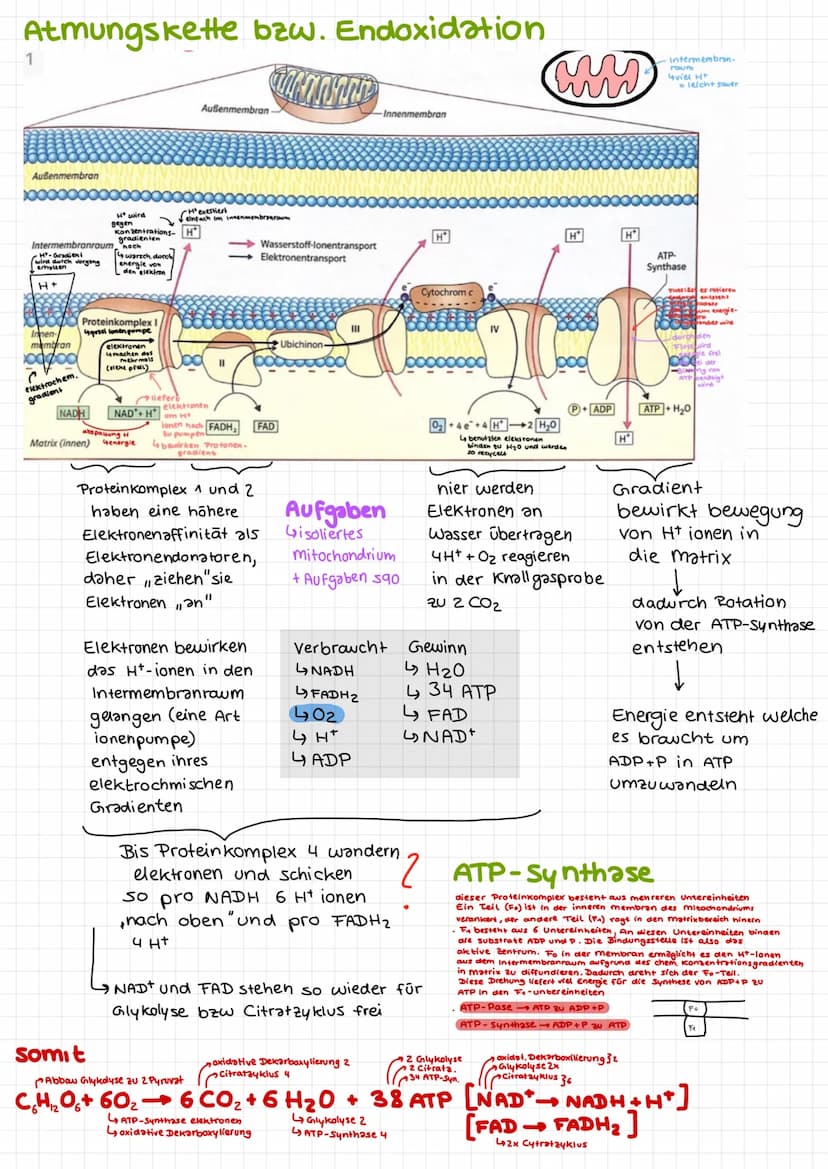 Atmungskette bzw. Endoxidation
1
Intermembran-
raum
↳viel H⁺
= leicht sauer
Außenmembran
Innenmembran
Außenmembran
H⁺ existiert
einfach im Innenmembranraum
H⁺ wird
gegen
Konzentrations-
gradienten
hoch
↳durch
energie von
den elektron
H⁺
H⁺
H⁺
H⁺
Wasserstoff-Ionentransport
Elektronentransport
Intermembranraum
H⁺-Gradient
wird durch vorgang
erhalten
H⁺
ATP-
Synthase
Proteinkomplex I
Elektronen
↳machen das
mehrmals
(siehe pfeil)
Innen-
membran
II
Ubichinon
III
e⁻
Cytochrom c
e⁻
IV
durch den
Fluss wird
energie frei
elektrochem.
gradient
NADH
NAD⁺+ H⁺
abspaltung H
↳energie
→liefert
elektronen
um H⁺
ionen hoch
zu pumpen
↳bewirken Protonen-
gradient
FADH₂
FAD
O₂ + 4 e⁻ + 4 H⁺ → 2 H₂O
↳benutzten elektronen
binden zu H₂O und werden
so recycelt
P + ADP
ATP + H₂O
H⁺
Matrix (innen)
Proteinkomplex 1 und 2
haben eine höhere
Elektronenaffinität als
Elektronendonatoren,
daher „ziehen" sie
Elektronen „an"
Aufgaben
↳isoliertes
mitochondrium
+ Aufgaben s90
hier werden
Elektronen an
Wasser übertragen
4H⁺ + O₂ reagieren
in der Knallgasprobe
zu 2 CO₂
Gradient
bewirkt bewegung
von H⁺ ionen in
die matrix
↓
dadurch Rotation
von der ATP-Synthase
entstehen
↓
Energie entsteht welche
es braucht um
ADP+P in ATP
umzuwandeln
Elektronen bewirken
das H⁺-ionen in den
Intermembranraum
gelangen (eine Art
ionenpumpe)
entgegen ihres
elektrochmischen
Gradienten
verbraucht
↳NADH
↳FADH₂
↳O₂
↳ H⁺
↳ ADP
Gewinn
↳ H₂O
↳ 34 ATP
↳ FAD
↳NAD⁺
Bis Proteinkomplex 4 wandern
elektronen und schicken
so pro NADH 6 H⁺ ionen
„nach oben" und pro FADH₂
4 H⁺
?
↳NAD⁺ und FAD stehen so wieder für
Glykolyse bzw Citratzyklus frei
ATP-Synthase
dieser Proteinkomplex besteht aus mehreren Untereinheiten
Ein Teil (F₀) ist in der inneren membran des mitochondriums
verankert, der andere Teil (F₁) ragt in den matrixbereich hinein
· F₁ besteht aus 6 Untereinheiten, An diesen Untereinheiten binden
die Substrate ADP und P. Die Bindungsstelle ist also das
aktive Zentrum. F₀ in der membran ermöglicht es den H⁺-Ionen
aus dem Intermembranraum aufgrund des chem. Konzentrationsgradienten
in matrix zu diffundieren. Dadurch dreht sich der F₀-Teil.
Diese Drehung liefert viel Energie für die Synthese von ADP+P zu
ATP in den F₁-untereinheiten
· ATP-Pase → ATP zu ADP+P
ATP-Synthase → ADP+P zu ATP
F₀
F₁
somit
Abbau Glykolyse zu 2 Pyruvat
oxidative Dekarboxylierung 2
Citratzyklus 4
2 Glykolyse
2 Citratz.
34 ATP-Syn.
oxidat. Dekarboxilierung 2x
Glykolyse 2x
Citratzyklus
C₆H₁₂O₆ + 6O₂ → 6 CO₂ + 6 H₂O + 38 ATP [NAD⁺ → NADH + H⁺]
[FAD → FADH₂]
↳ATP-Synthase elektronen
↳oxidative Dekarboxylierung
↳Glykolyse 2
↳ATP-Synthase 4
↳2x Cytratzyklus